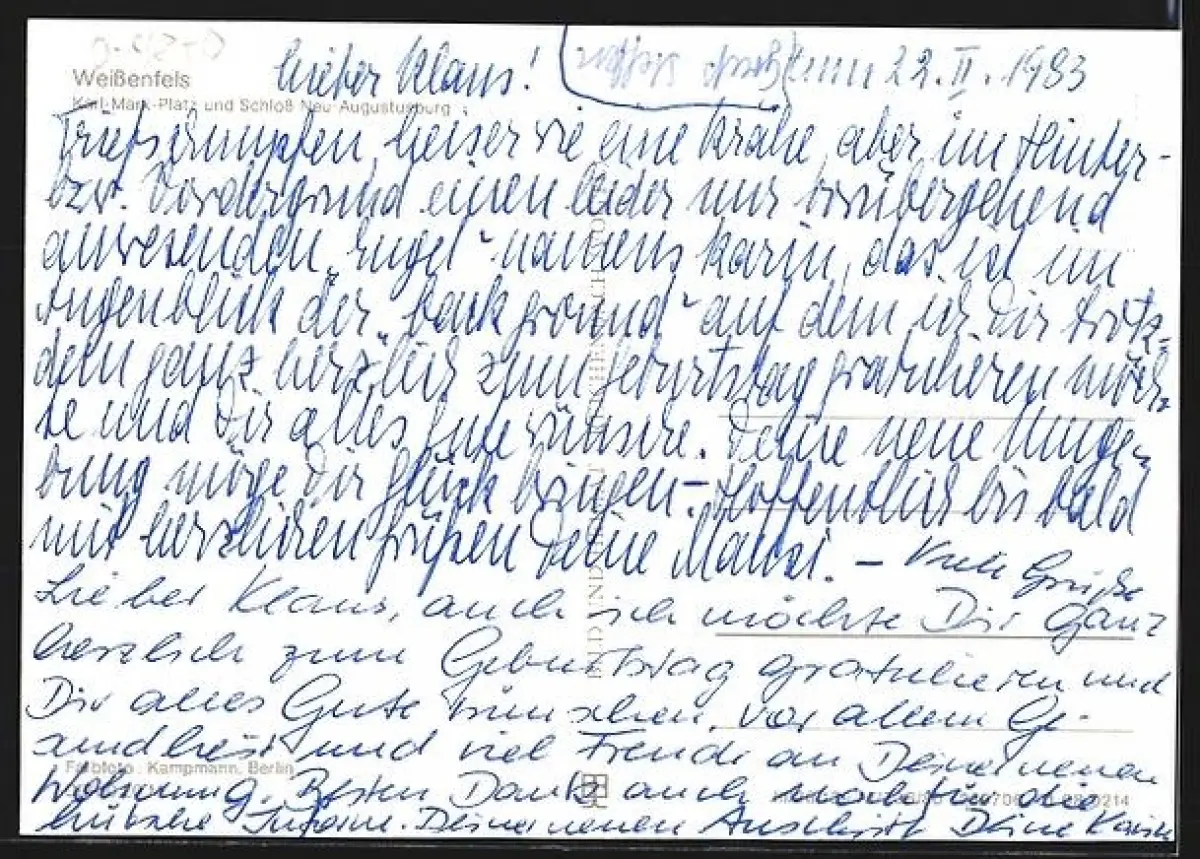 Weißenfels
Karl-Marx-Platz und Schloß Neu-Augustusburg
Lieber Klaus! 22. II. 1983
Triefschnupfen, heiser wie eine Krähe, aber im Hinter-
bzw. Vordergrund einen leider nur vorübergehend
anwesenden „Engel" namens Karin, das ist im
Augenblick der „background" auf dem ich Dir trotz-
dem ganz herzlich zum Geburtstag gratulieren möch-
te und Dir alles Gute wünsche. Deine neue Umge-
bung möge Dir Glück bringen – Hoffentlich bis bald
mit herzlichen Grüßen Deine – Viele Grüße
Lieber Klaus, auch ich möchte Dir ganz
herzlich zum Geburtstag gratulieren und
Dir alles Gute wünschen, vor allem Ge-
sundheit und viel Freude an Deiner neuen
Farbfoto: Kampmann, Berlin
Wohnung. Besten Dank auch noch für die
Deiner neuen Anschrift Deine Karin